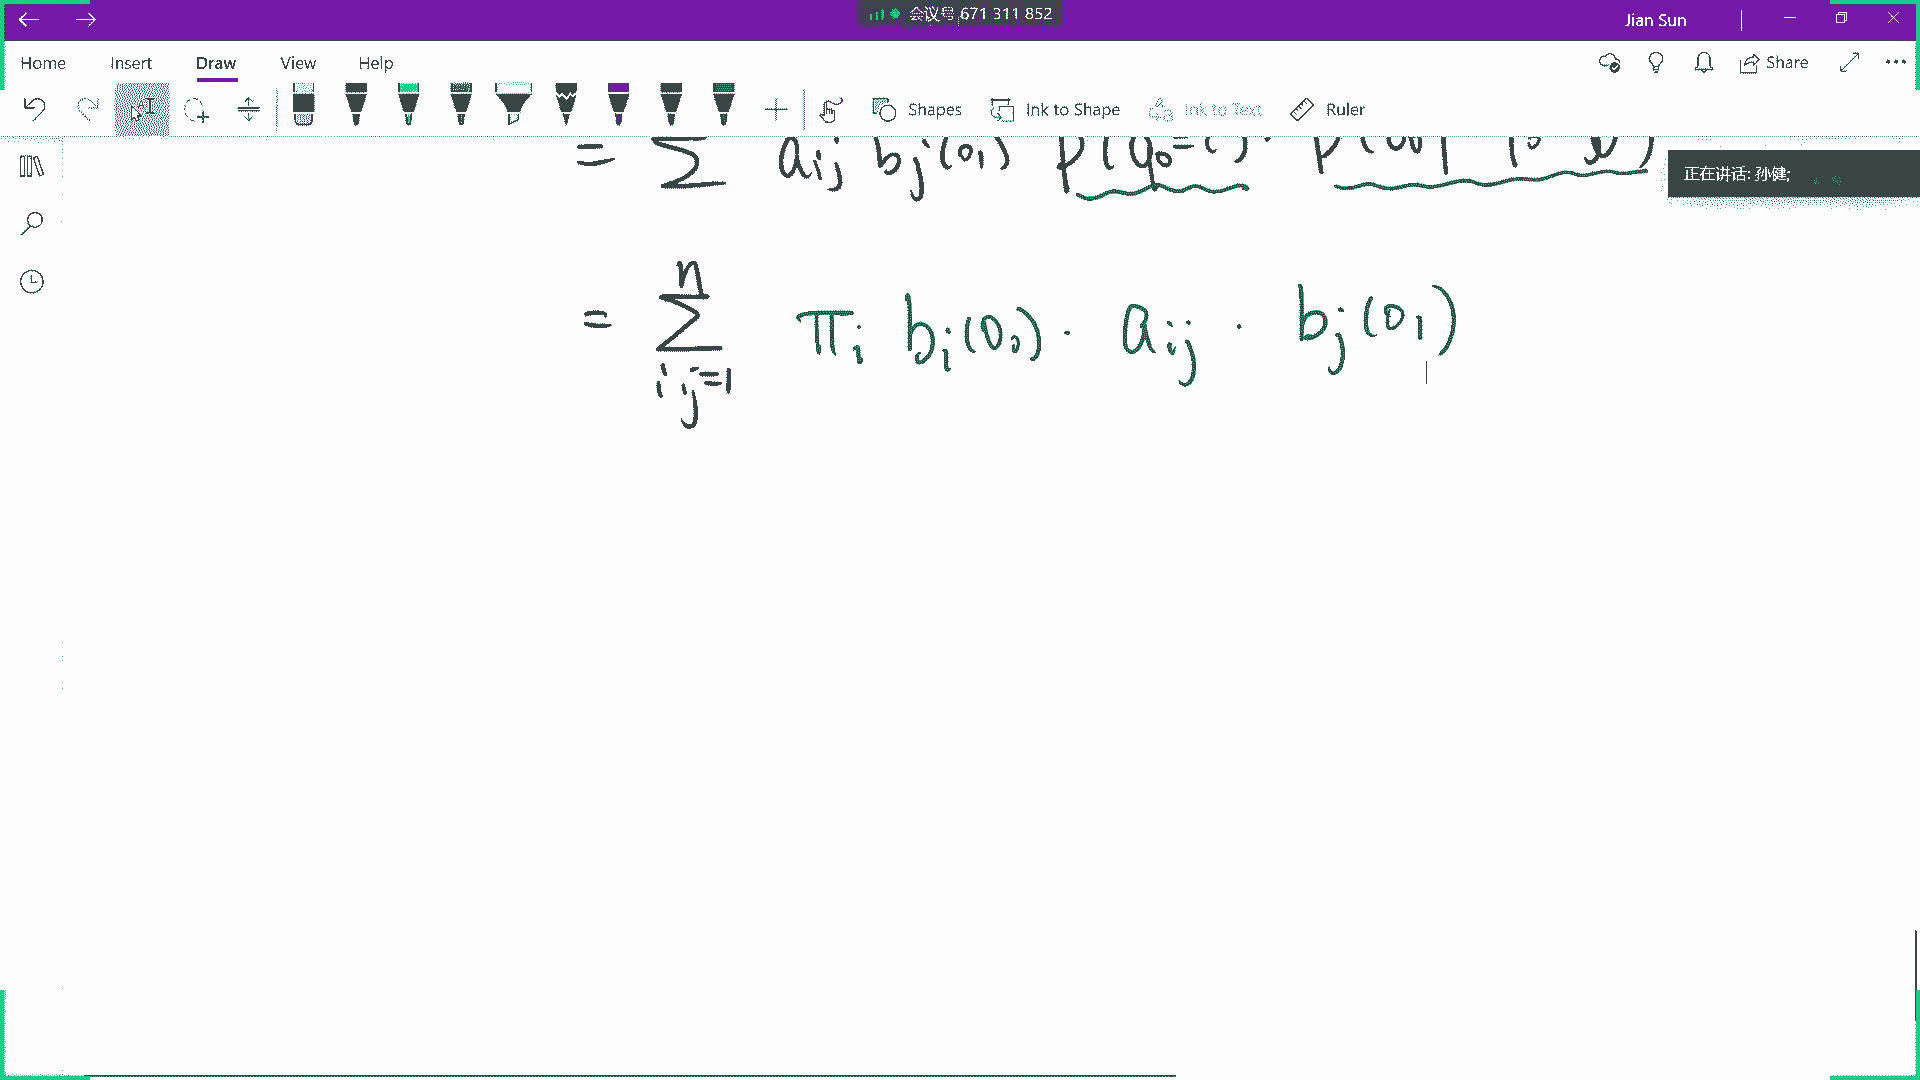 会议号 671 311 852
Jian Sun
Home Insert Draw View Help
Share
Shapes Ink to Shape Ink to Text Ruler
正在讲话: 孙健;
= Σ a_ij b_j(o_1) p(q_0=i) ·
= Σ_{i j=1}^{n} π_i b_i(o_0) · a_ij · b_j(o_1)